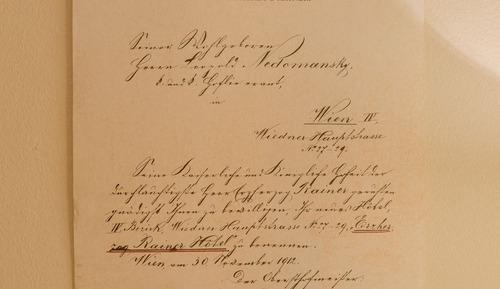 Seiner Wohlgeboren
Herrn Leopold Nedomansky,
k. und k. Hoflieferant,
in
Wien IV.
Wiedner Hauptstrasse
No 27-29.
Seine Kaiserliche und Königliche Hoheit der
durchlauchtigste Herr Erzherzog Rainer geruhten
gnädigst Ihnen zu bewilligen, Ihr neues Hôtel,
IV. Bezirk, Wiedner Hauptstrasse No 27-29, „Erzher-
zog Rainer Hôtel" zu benennen.
Wien, am 30 November 1912.
Der Obersthofmeister: